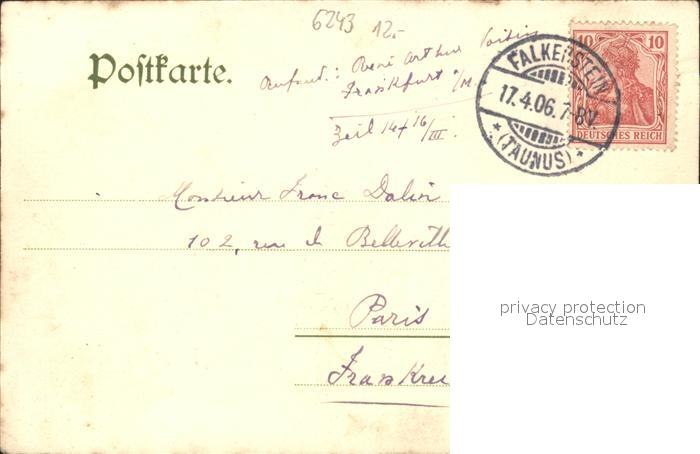 6243 12.-
Postkarte.
René Arthur
Frankfurt a/M.
Zeil 14+16/III.
10 10
DEUTSCHES REICH
FALKENSTEIN
17.4.06. 7-8V.
* (TAUNUS) *
Monsieur Franc
102, rue d Bellevill
Paris
Frankrei
privacy protection
Datenschutz